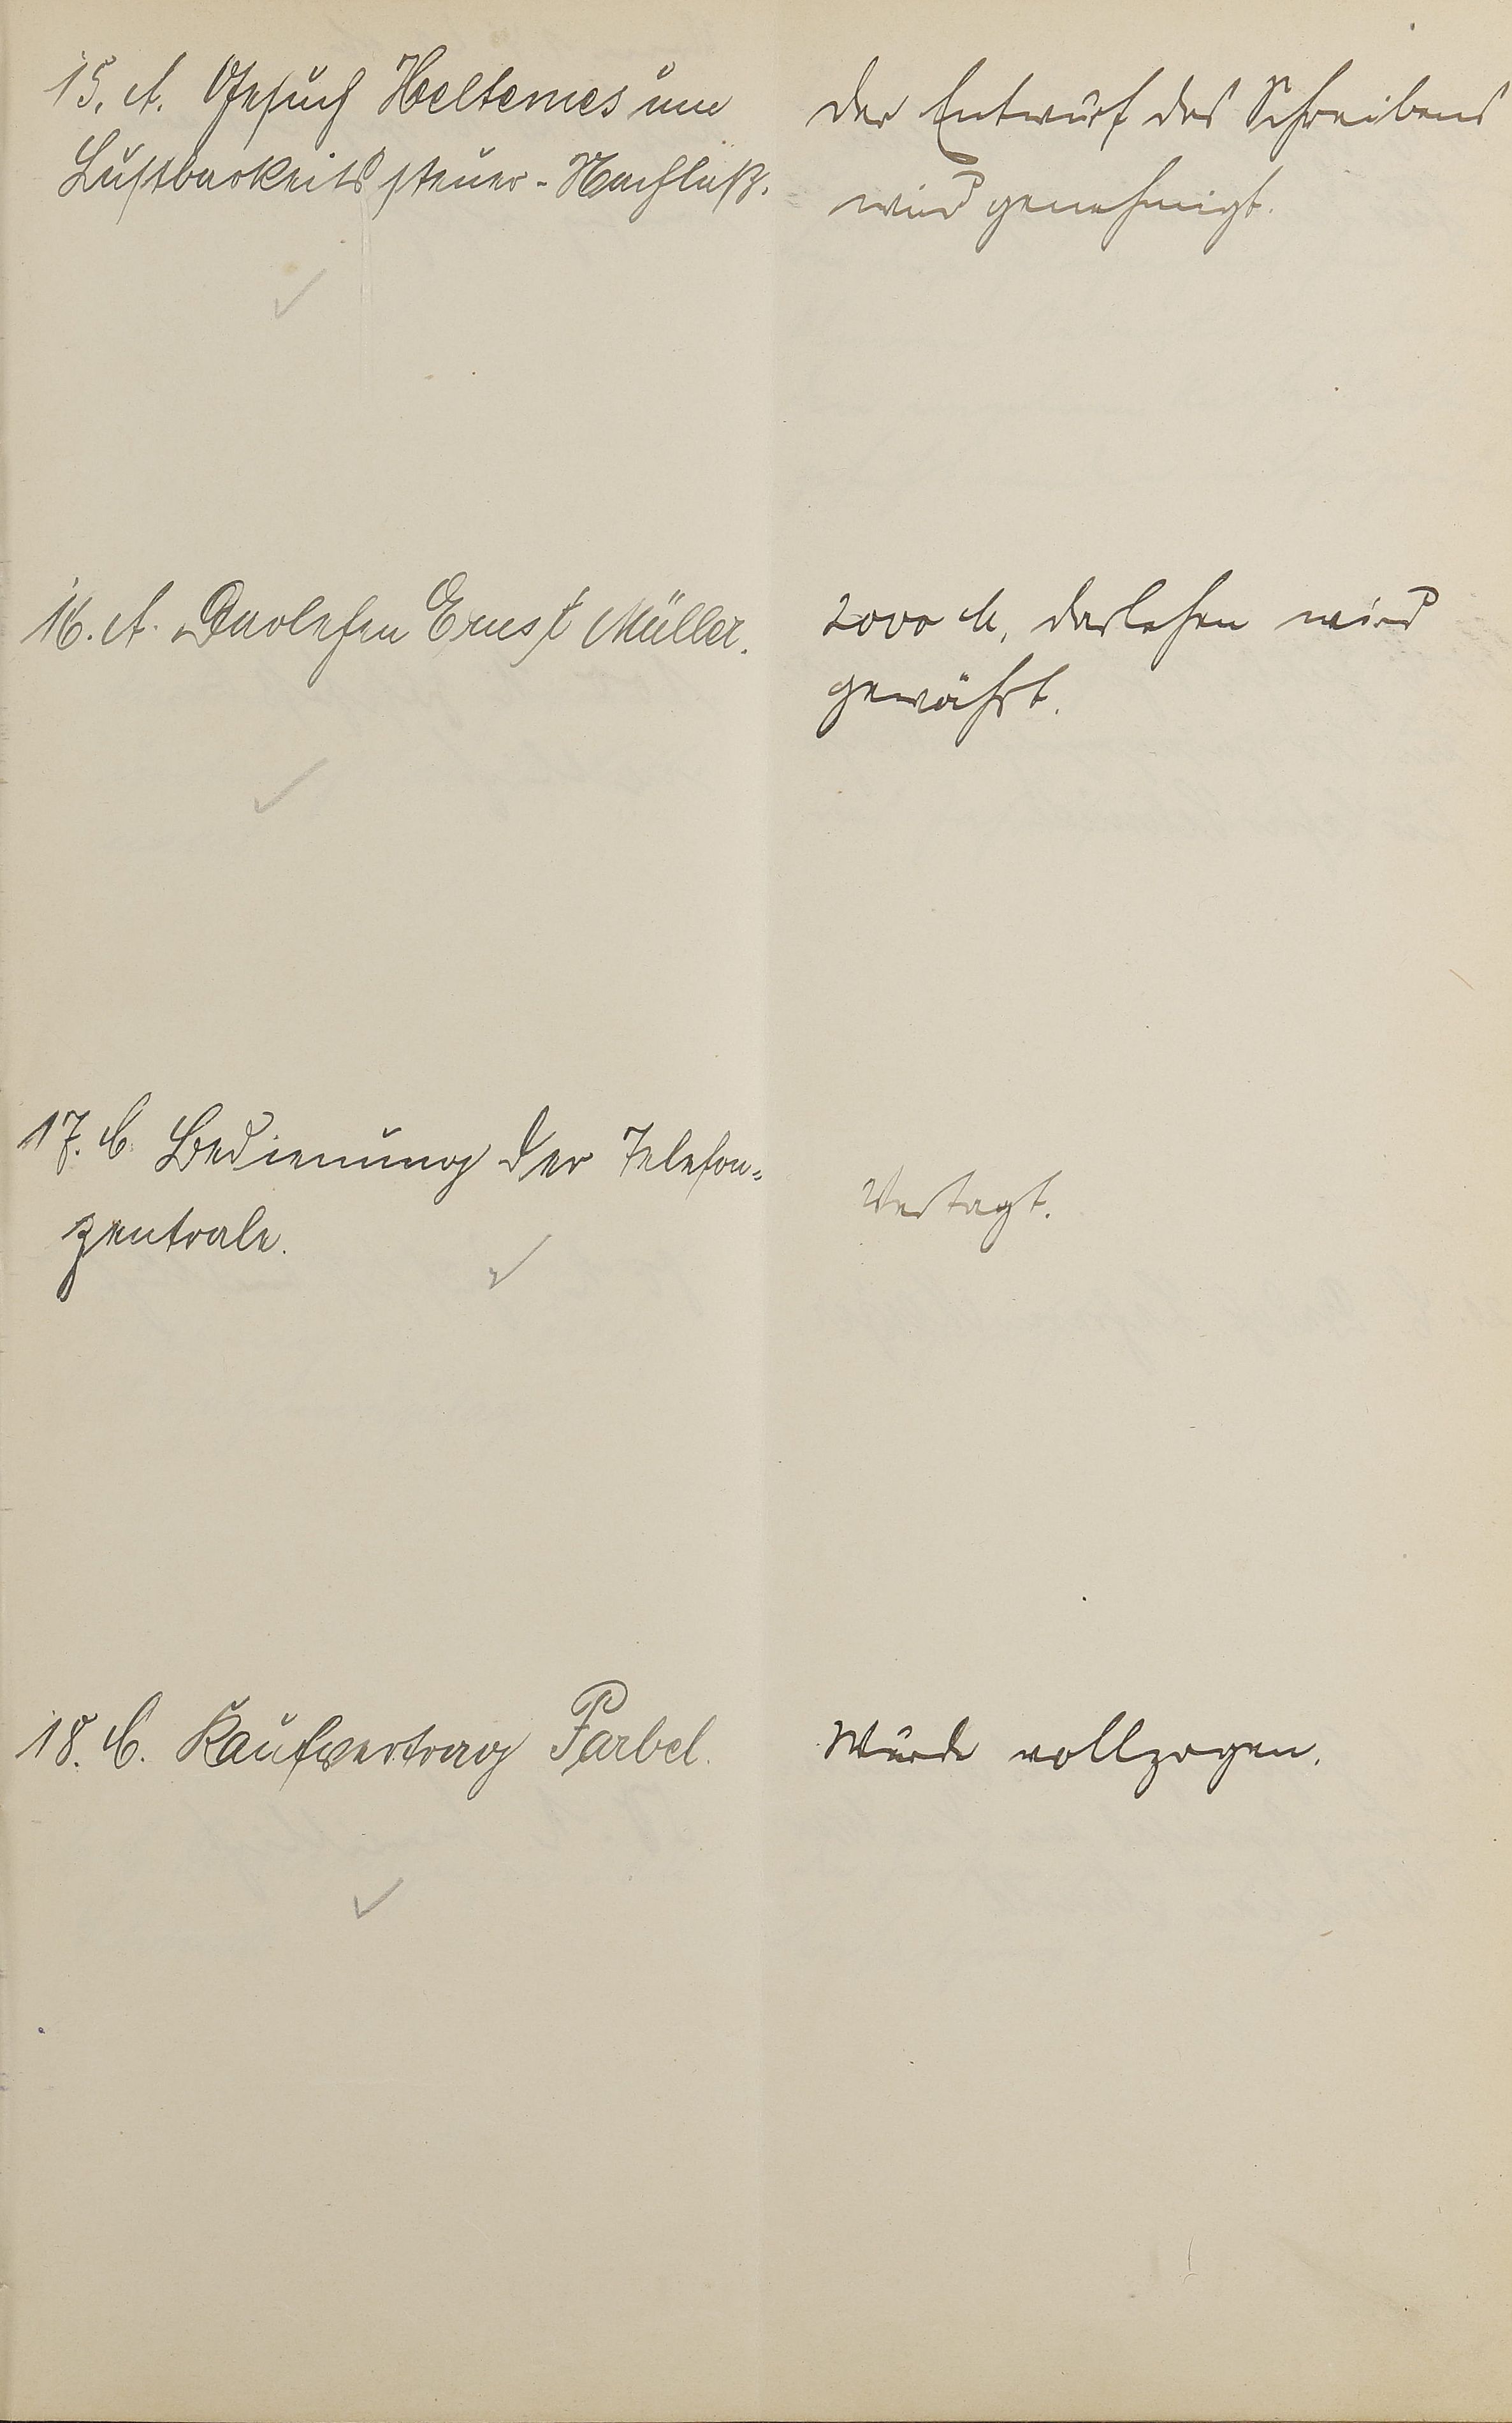 15. A. Gesuch Heltemes um
Lustbarkeitssteuer-Nachlaß.
Der Entwurf des Schreibens
wird genehmigt.
16. A. Darlehen Ernst Müller.
2000 M. Darlehen wird
gewährt.
17. C. Bedienung der Telefon=
zentrale.
Vertagt.
18. C. Kaufvertrag Farbel.
Wurde vollzogen.